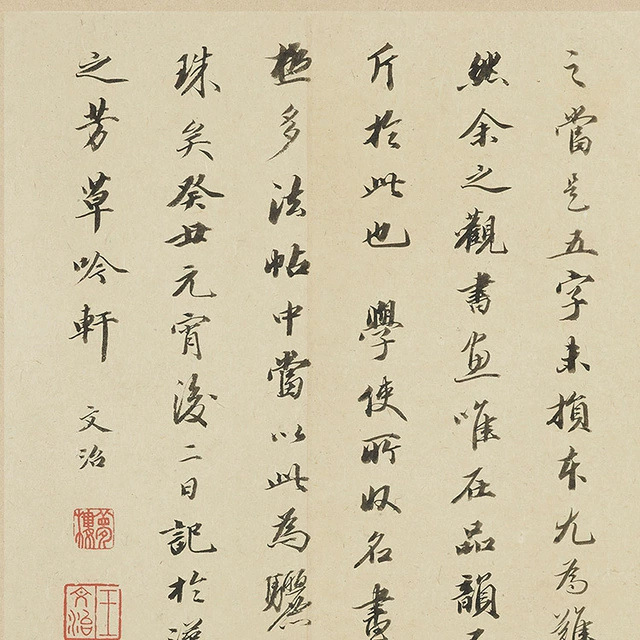 之當是五字未損本尤為難
然余之觀書畫唯在品韻
斤於此也 學使所收名書
極多法帖中當以此為驪
珠矣癸丑元宵後二日記於漢
之芳草吟軒 文治
夢樓
王文治